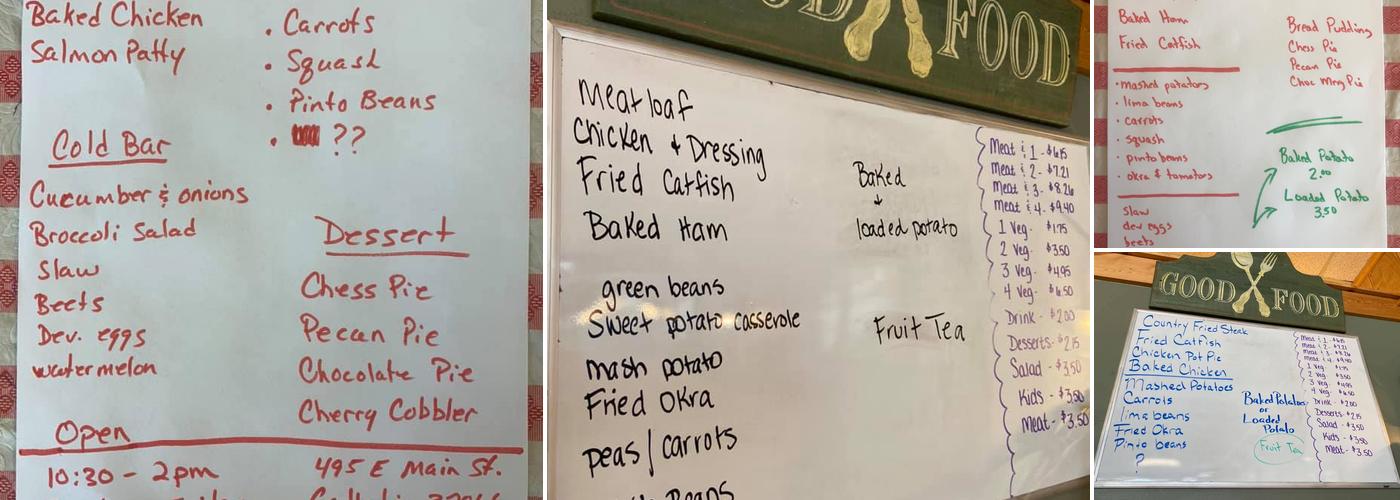 Baked Chicken
Salmon Patty
Cold Bar
Cucumber & onions
Broccoli Salad
Slaw
Beets
Dev. eggs
watermelon
• Carrots
• Squash
• Pinto Beans
• ??
Dessert
Chess Pie
Pecan Pie
Chocolate Pie
Cherry Cobbler
Open
10:30 - 2pm
495 E Main St.
FOOD
Meatloaf
Chicken & Dressing
Fried Catfish
Baked Ham
green beans
Sweet potato casserole
mash potato
Fried Okra
peas/carrots
Beans
Baked
loaded potato
Fruit Tea
Meat & 1 - $6.15
Meat & 2 - $7.21
Meat & 3 - $8.26
Meat & 4 - $9.40
1 Veg - $1.75
2 Veg - $3.50
3 Veg - $4.95
4 Veg - $6.50
Drink - $2.00
Desserts - $2.15
Salad - $3.50
Kids - $3.50
Meat - $3.50
Baked Ham
Fried Catfish
• mashed potatoes
• lima beans
• carrots
• squash
• pinto beans
• okra & tomatoes
slaw
dev eggs
beets
Bread Pudding
Chess Pie
Pecan Pie
Choc Mrng Pie
Baked Potato
2.00
Loaded Potato
3.50
GOOD FOOD
Country Fried Steak
Fried Catfish
Chicken Pot Pie
Baked Chicken
Mashed Potatoes
Carrots
lima beans
Fried Okra
Pinto beans
?
Baked Potatoes
or
Loaded
Potato
Fruit Tea
Meat & 1 - $6.15
Meat & 2 - $7.21
Meat & 3 - $8.26
Meat & 4 - $9.40
1 Veg - $1.75
2 Veg - $3.50
3 Veg - $4.95
4 Veg - $6.50
Drink - $2.00
Desserts - $2.15
Salad - $3.50
Kids - $3.50
Meat - $3.50